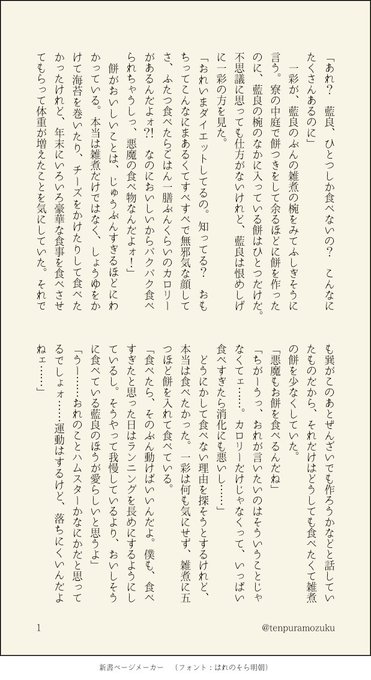 「あれ？　藍良、ひとつしか食べないの？　こんなに
たくさんあるのに」
　一彩が、藍良のぶんの雑煮の椀をみてふしぎそうに
言う。寮の中庭で餅つきをして余るほどに餅を作った
のに、藍良の椀のなかに入っている餅はひとつだけだ。
不思議に思っても仕方がないけれど、藍良は恨めしげ
に一彩の方を見た。
「おれいまダイエットしてるの。知ってる？　おも
ちってこんなにまあるくてすべすべで無邪気な顔して
さ、ふたつ食べたらごはん一膳ぶんくらいのカロリー
があるんだよォ⁈　なのにおいしいからパクパク食べ
られちゃうしっ、悪魔の食べ物なんだよォ！」
　餅がおいしいことは、じゅうぶんすぎるほどにわ
かっている。本当は雑煮だけではなく、しょうゆをか
けて海苔を巻いたり、チーズをかけたりして食べた
かったけれど、年末にいろいろ豪華な食事を食べさせ
てもらって体重が増えたことを気にしていた。それで
も巽がこのあとぜんざいでも作ろうかなどと話してい
たものだから、それだけはどうしても食べたくて雑煮
の餅を少なくしていた。
「悪魔もお餅を食べるんだね」
「ちがーうっ、おれが言いたいのはそういうことじゃ
なくてェ……。カロリーだけじゃなくって、いっぱい
食べすぎたら消化にも悪いし……」
　どうにかして食べない理由を探そうとするけれど、
本当は食べたかった。一彩は何も気にせず、雑煮に五
つほど餅を入れて食べている。
「食べたら、そのぶん動けばいいんだよ。僕も、食べ
すぎたと思った日はランニングを長めにするようにし
ているし。そうやって我慢しているより、おいしそう
に食べている藍良のほうが愛らしいと思うよ」
「うー……おれのことハムスターかなにかだと思って
るでしょォ……運動はするけど、落ちにくいんだよ
ねェ……」
1
@tenpuramozuku
新書ページメーカー　（フォント：はれのそら明朝）